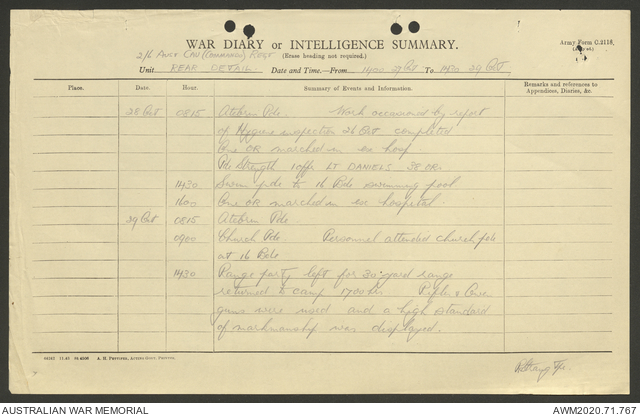 WAR DIARY or INTELLIGENCE SUMMARY.
Army Form C.2118.
2/6 Aust Cav (Commando) Regt
(Erase heading not required.)
Unit REAR DETAIL. Date and Time.—From 1400 27 Oct To 1430 29 Oct
Place. Date. Hour. Summary of Events and Information. Remarks and references to Appendices, Diaries, &c.
28 Oct 0815 Atebrin Pde. Work occasioned by report
of Hygiene inspection 26 Oct completed
One OR marched in ex hosp
Pde Strength 1 offr LT DANIELS 38 ORs.
1430 Swim pde to 16 Bde swimming pool
1600 One OR marched in ex hospital.
29 Oct 0815 Atebrin Pde
0900 Church Pde Personnel attended church pde
at 16 Bde
1430 Range party left for 30 yard range
returned to camp 1700 hrs Rifles & Owen
guns were used and a high standard
of marksmanship was displayed.
A. H. PETTIFER, ACTING GOVT. PRINTER.
AUSTRALIAN WAR MEMORIAL
AWM2020.71.767